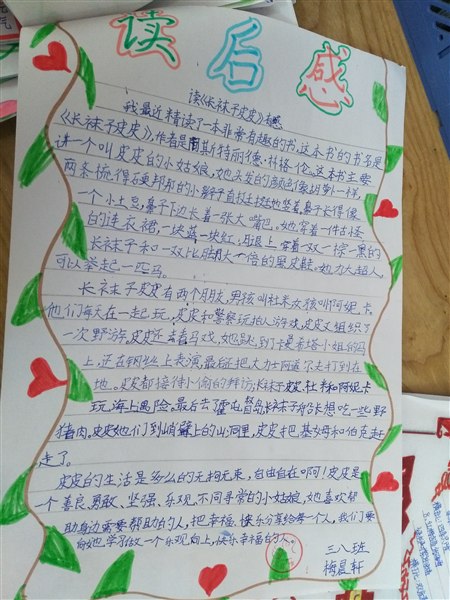 读后感
读《长袜子皮皮》有感
我最近精读了一本非常有趣的书,这本书的书名是
《长袜子皮皮》,作者是阿斯特丽德·林格伦,这本书主要
讲一个叫皮皮的小姑娘,她头发的颜色像胡萝卜一样,
两条梳得硬邦邦的小辫子直挺挺地竖着,鼻子长得像
一个小土豆,鼻子下边长着一张大嘴巴。她穿着一件古怪
的连衣裙,一块蓝一块红,腿上穿着一双一棕一黑的
长袜子和一双比脚大一倍的黑皮鞋。她力大超人,
可以举起一匹马。
长袜子皮皮有两个朋友,男孩叫杜米女孩叫阿妮卡,
他们每天在一起玩,皮皮和警察玩拍人游戏,皮皮又组织了
一次野游,皮皮还去看马戏,她跳到了卡曼希塔小姐的马
上,还在钢丝上表演,最后还把大力士阿道尔夫打到在
地。皮皮都接待小偷的拜访,长袜子皮皮、杜米和阿妮卡
玩海上遇险,最后去了霍屯督岛,长袜子船长想吃一些野
猪肉,皮皮她们到峭壁上的山洞里,皮皮把基姆和伯克赶
走了。
皮皮的生活是多么的无拘无束,自由自在啊!皮皮是
一个善良、勇敢、坚强、乐观、不同寻常的小姑娘,她喜欢帮
助身边需要帮助的人,把幸福、快乐分享给每一个人,我们要
向她学习做一个乐观向上,快乐幸福的的人。
三八班
梅晨轩